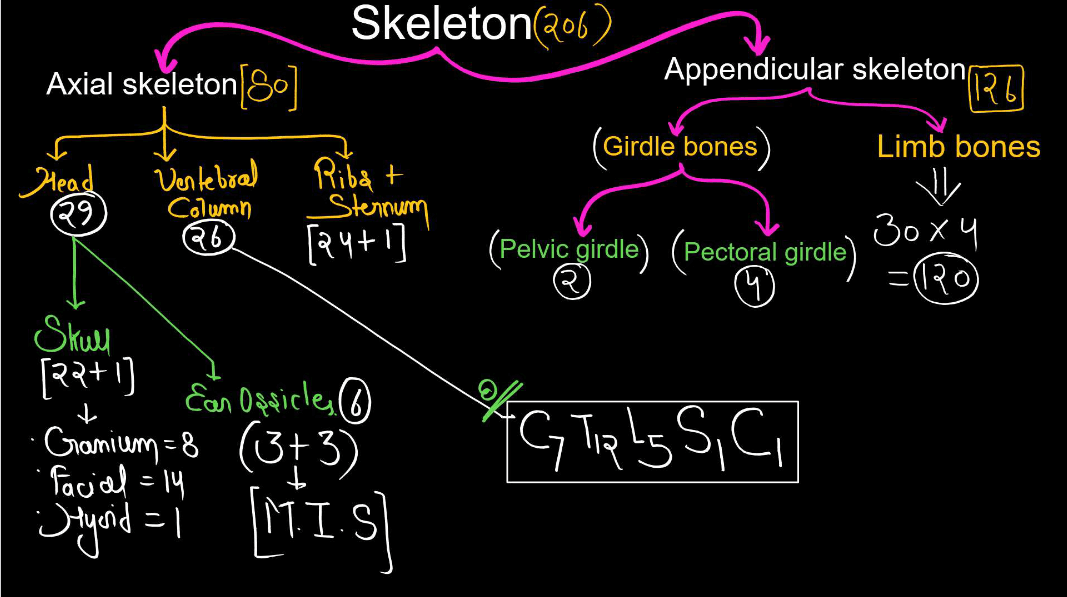 Skeleton (206)
Axial skeleton [80]
Appendicular skeleton 126
Head
29
Vertebral
Column
26
Ribs +
Sternum
[24+1]
(Girdle bones)
Limb bones
(Pelvic girdle)
2
(Pectoral girdle)
4
30 x 4
= 120
Skull
[22+1]
Ear Ossicles 6
· Cranium = 8
· Facial = 14
· Hyoid = 1
(3+3)
[M.I.S]
C7 T12 L5 S1 C1